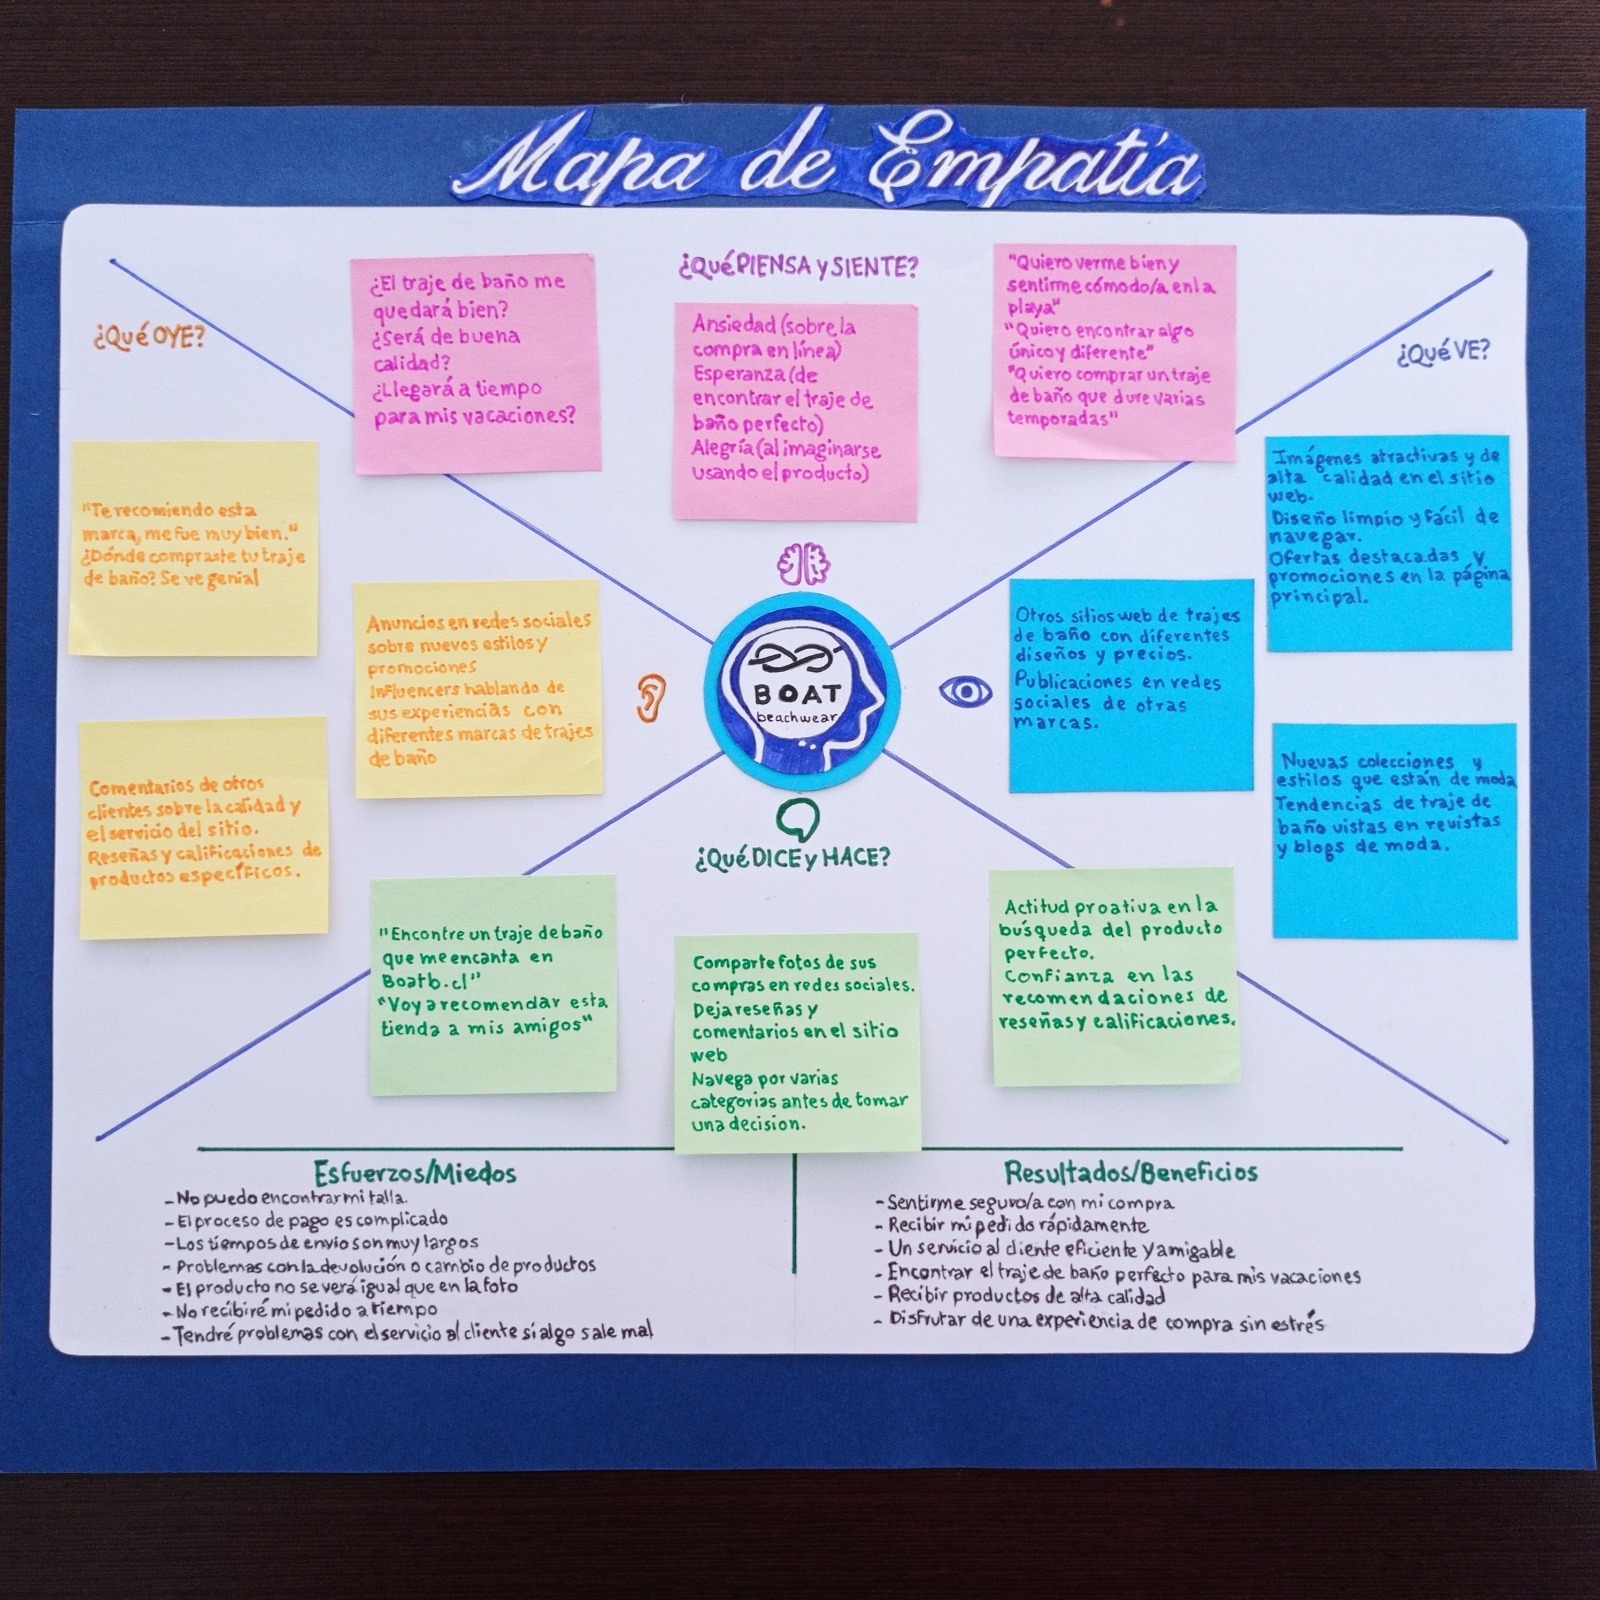 Mapa de Empatía
¿Qué PIENSA y SIENTE?
¿El traje de baño me
quedará bien?
¿Será de buena
calidad?
¿Llegará a tiempo
para mis vacaciones?
Ansiedad (sobre la
compra en línea)
Esperanza (de
encontrar el traje de
baño perfecto)
Alegría (al imaginarse
usando el producto)
"Quiero verme bien y
sentirme cómodo/a en la
playa"
"Quiero encontrar algo
único y diferente"
"Quiero comprar un traje
de baño que dure varias
temporadas"
¿Qué OYE?
"Te recomiendo esta
marca, me fue muy bien."
¿Dónde compraste tu traje
de baño? Se ve genial
Anuncios en redes sociales
sobre nuevos estilos y
promociones
Influencers hablando de
sus experiencias con
diferentes marcas de trajes
de baño
Comentarios de otros
clientes sobre la calidad y
el servicio del sitio.
Reseñas y calificaciones de
productos específicos.
BOAT
beachwear
¿Qué VE?
Imágenes atractivas y de
alta calidad en el sitio
web.
Diseño limpio y fácil de
navegar.
Ofertas destacadas y
promociones en la página
principal.
Otros sitios web de trajes
de baño con diferentes
diseños y precios.
Publicaciones en redes
sociales de otras
marcas.
Nuevas colecciones y
estilos que están de moda
Tendencias de traje de
baño vistas en revistas
y blogs de moda.
¿Qué DICE y HACE?
"Encontre un traje de baño
que me encanta en
Boatb.cl"
"Voy a recomendar esta
tienda a mis amigos"
Comparte fotos de sus
compras en redes sociales.
Deja reseñas y
comentarios en el sitio
web
Navega por varias
categorias antes de tomar
una decision.
Actitud proativa en la
búsqueda del producto
perfecto.
Confianza en las
recomendaciones de
reseñas y calificaciones.
Esfuerzos/Miedos
- No puedo encontrar mi talla.
- El proceso de pago es complicado
- Los tiempos de envío son muy largos
- Problemas con la devolución o cambio de productos
- El producto no se verá igual que en la foto
- No recibiré mi pedido a tiempo
- Tendré problemas con el servicio al cliente si algo sale mal
Resultados/Beneficios
- Sentirme seguro/a con mi compra
- Recibir mi pedido rápidamente
- Un servicio al cliente eficiente y amigable
- Encontrar el traje de baño perfecto para mis vacaciones
- Recibir productos de alta calidad
- Disfrutar de una experiencia de compra sin estrés